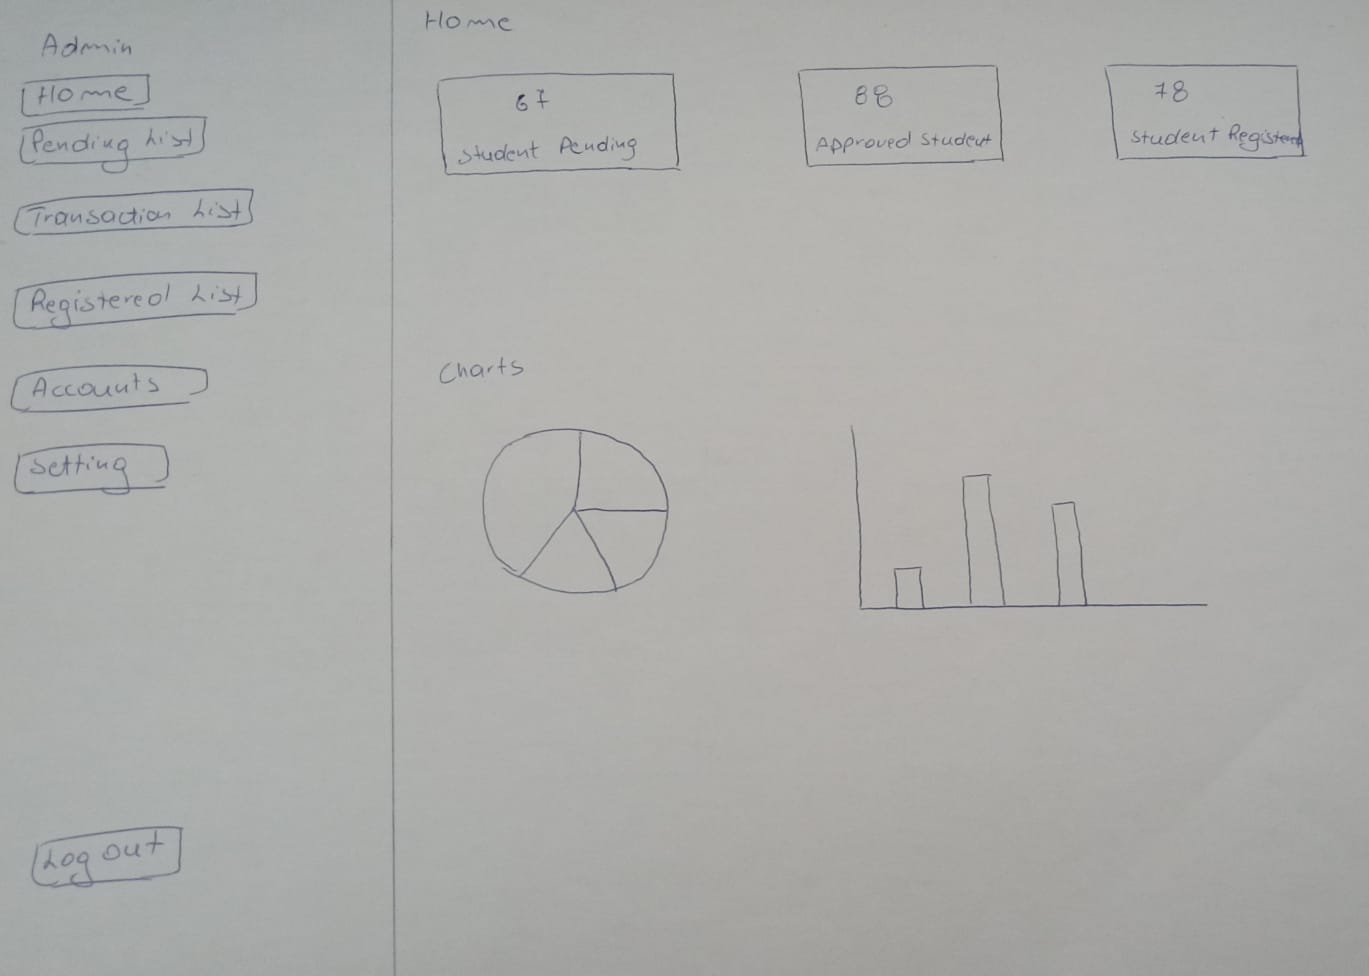 Admin
Home
Pending List
Transaction List
Registered List
Accounts
Setting
Log out
Home
67
Student Pending
88
Approved Student
78
Student Registered
Charts